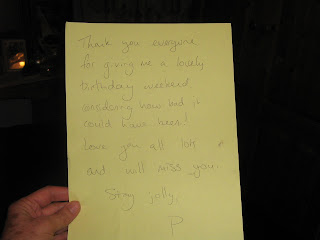 Thank you everyone
for giving me a lovely
birthday weekend
considering how bad it
could have been!
Love you all lots &
and will miss you.
Stay jolly,
P